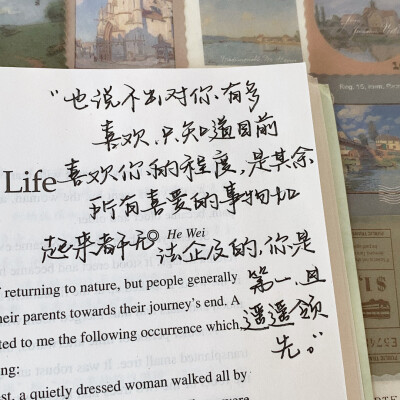 “也说不出对你有多
喜欢,只知道目前
Life 喜欢你的程度,是其余
所有喜爱的事物加
He Wei
起来都无法企及的,你是
第一,且
遥遥领
先。”
f returning to nature, but people generally
heir parents towards their journey's end. A
ted to me the following occurrence which,
ng:
est, a quietly dressed woman walked all by